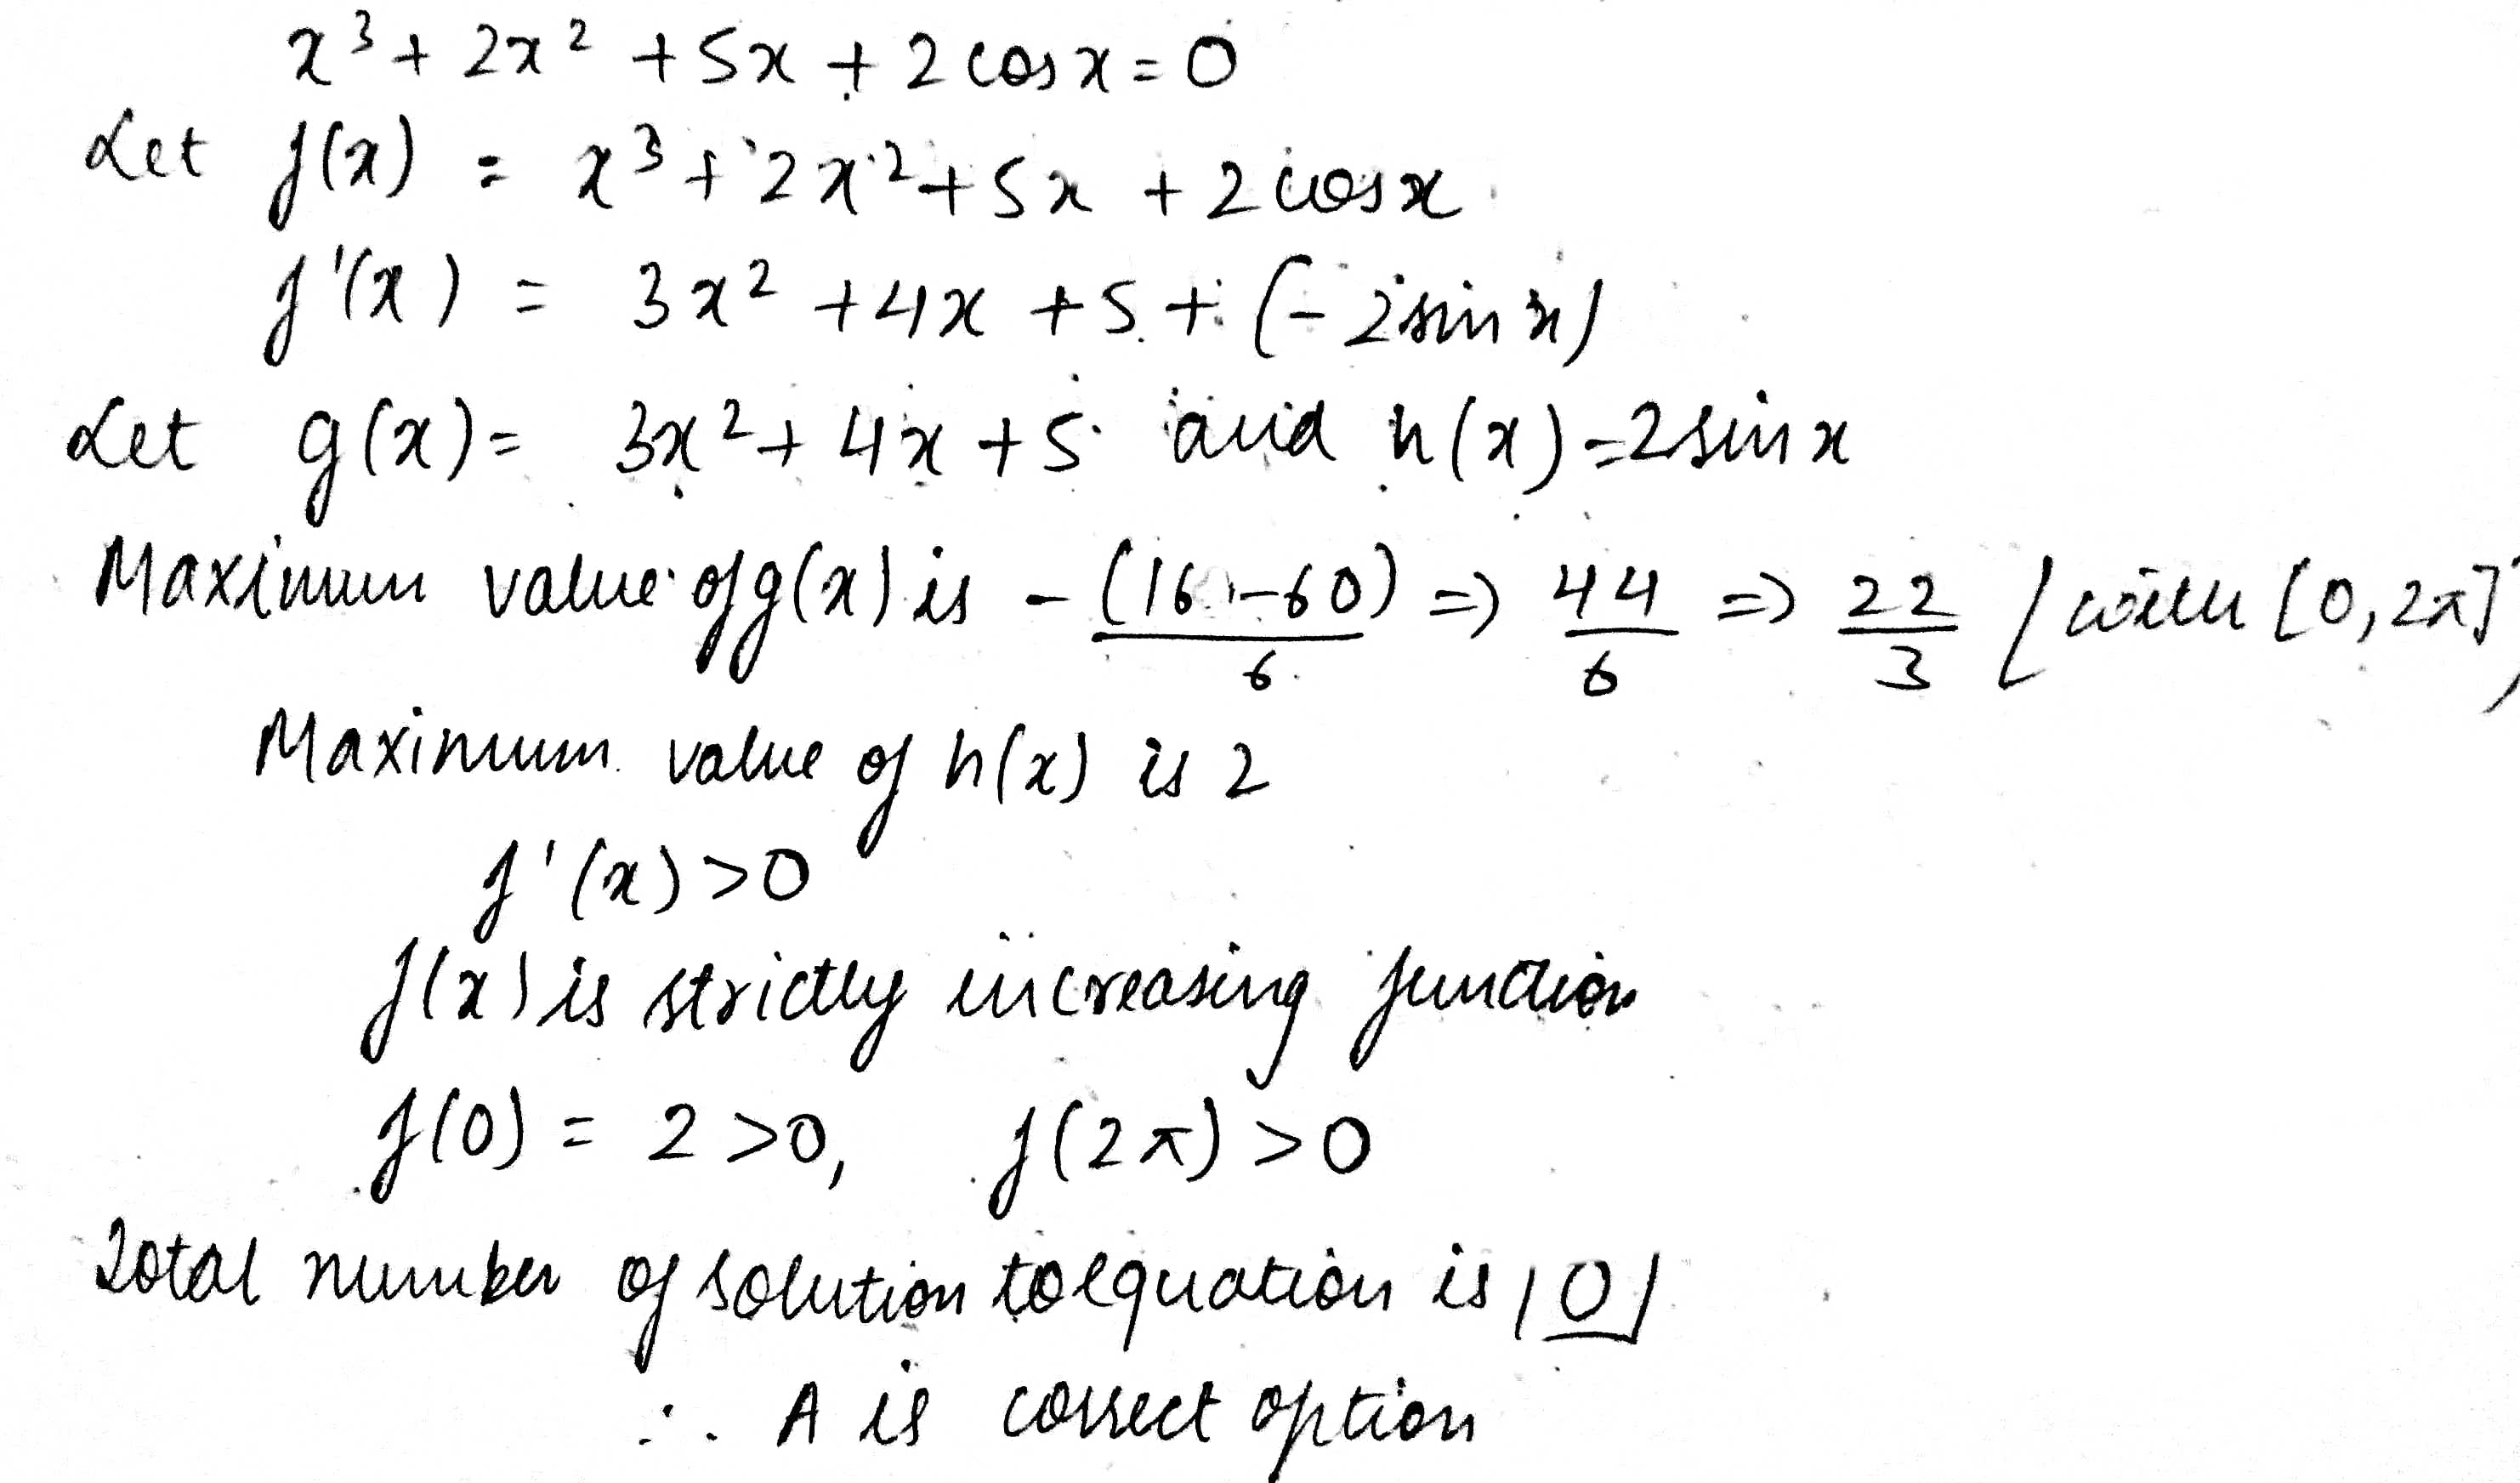 x³ + 2x² + 5x + 2cosx = 0
Let f(x) = x³ + 2x² + 5x + 2cosx
f'(x) = 3x² + 4x + 5 + (-2sinx)
Let g(x) = 3x² + 4x + 5 and h(x) = 2sinx
Maximum value of g(x) is -(16-60)/6 => 44/6 => 22/3 [with [0,2π]]
Maximum value of h(x) is 2
f'(x) > 0
f(x) is strictly increasing function
f(0) = 2 > 0, f(2π) > 0
Total number of solution to equation is |0|
∴ A is correct option